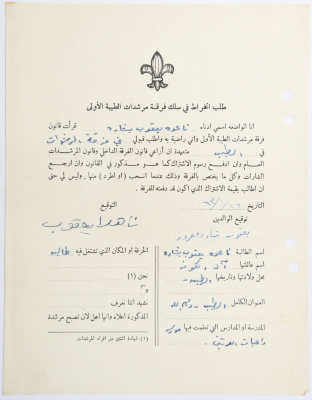 طلب انخراط في سلك فرقة مرشدات الطيبة الأولى
انا الواضعة اسمي ادناه ناهده يعقوب بشاره قرأت قانون
فرقة مرشدات الطيبة الأولى واني راضية به واطلب قبولي في فرقة
في الطيبة متعهدة ان أراعي قانون الفرقة الداخلي وقانون المرشدات
العام وان ادفع رسوم الاشتراك كما هو مذكور في القانون وان ارجع
الشارات وكل ما يختص بالفرقة وذلك عندما انسحب (او اطرد) منها. وليس لي حق
ان اطالب بقيمة الاشتراك الذي اكون قد دفعته للفرقة.
التاريخ
التوقيع
ناهده يعقوب
توقيع الوالدين
يعقوب بشاره
اسم الطالبة ناهده يعقوب بشاره
اسم عائلتها
محل ولادتها وتاريخها الطيبة
العنوان الكامل الطيبة - رام الله
المدرسة او المدارس التي تعلمت فيها
راهبات اللاتين
الحرفة او المكان الذي تشتغل فيه طالبة
نحن (١)
و٢
نشهد أننا نعرف
المذكورة اعلاه وانها اهل لان تصبح مرشدة
(١) شهادة اثنين من افراد المرشدات.